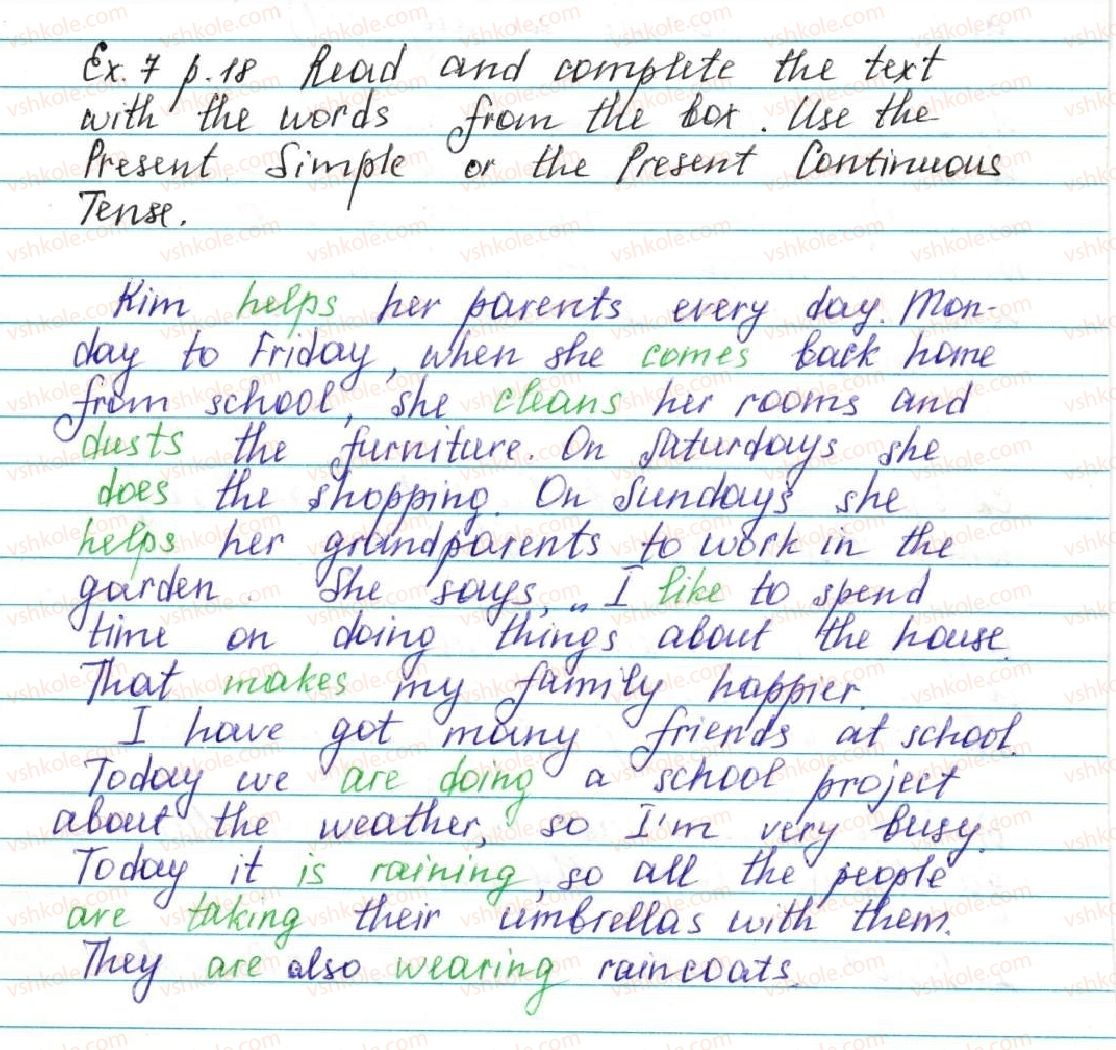 Ex. 7 p. 18 Read and complete the text
with the words from the box. Use the
Present Simple or the Present Continuous
Tense.
Kim helps her parents every day. Mon-
day to Friday, when she comes back home
from school, she cleans her rooms and
dusts the furniture. On Saturdays she
does the shopping. On Sundays she
helps her grandparents to work in the
garden. She says, „I like to spend
time on doing things about the house.
That makes my family happier.
I have got many friends at school.
Today we are doing a school project
about the weather, so I'm very busy.
Today it is raining, so all the people
are taking their umbrellas with them.
They are also wearing raincoats.